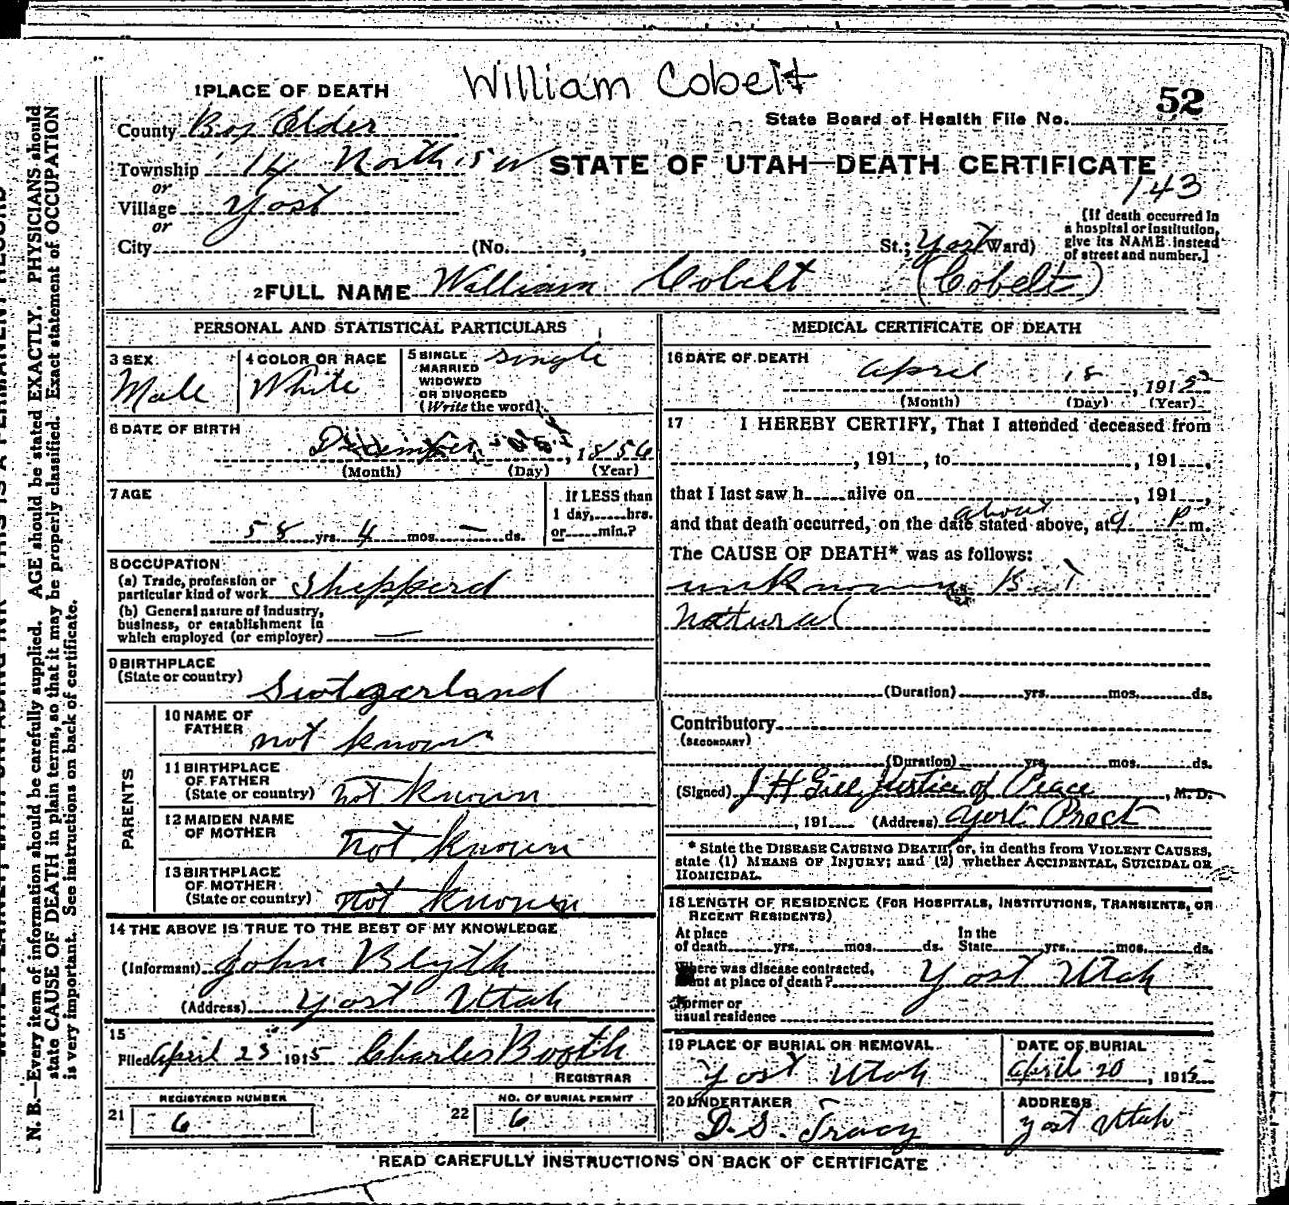 William Cobelt
1 PLACE OF DEATH
52
State Board of Health File No.
County Box Elder
Township 14 North 15 W
STATE OF UTAH—DEATH CERTIFICATE
143
or
Village Yost
or
City (No. , St.; Yost Ward)
[If death occurred in
a hospital or institution,
give its NAME instead
of street and number.]
2 FULL NAME William Cobelt (Cobelt)
PERSONAL AND STATISTICAL PARTICULARS
3 SEX
Male
4 COLOR OR RACE
White
5 SINGLE
MARRIED
WIDOWED
OR DIVORCED
(Write the word)
Single
6 DATE OF BIRTH
December , 1856
(Month) (Day) (Year)
7 AGE
58 yrs. 4 mos. — ds.
If LESS than
1 day, hrs.
or min.?
8 OCCUPATION
(a) Trade, profession or
particular kind of work Shepperd
(b) General nature of industry,
business, or establishment in
which employed (or employer) —
9 BIRTHPLACE
(State or country)
Switzerland
PARENTS
10 NAME OF
FATHER
not known
11 BIRTHPLACE
OF FATHER
(State or country) not known
12 MAIDEN NAME
OF MOTHER
not known
13 BIRTHPLACE
OF MOTHER
(State or country) not known
14 THE ABOVE IS TRUE TO THE BEST OF MY KNOWLEDGE
(Informant) John Blyth
(Address) Yost Utah
15
Filed April 23 1915 Charles Booth
REGISTRAR
21 REGISTERED NUMBER
6
22 NO. OF BURIAL PERMIT
6
MEDICAL CERTIFICATE OF DEATH
16 DATE OF DEATH
April 18 , 1915
(Month) (Day) (Year)
17 I HEREBY CERTIFY, That I attended deceased from
, 191 , to , 191 ,
that I last saw h alive on , 191 ,
about
and that death occurred, on the date stated above, at 9 P m.
The CAUSE OF DEATH* was as follows:
unknown But
Natural
(Duration) yrs. mos. ds.
Contributory
(SECONDARY)
(Duration) yrs. mos. ds.
(Signed) J H Gill Justice of Peace , M. D.
, 191 (Address) Yost Prect
* State the DISEASE CAUSING DEATH, or, in deaths from VIOLENT CAUSES,
state (1) MEANS OF INJURY; and (2) whether ACCIDENTAL, SUICIDAL OR
HOMICIDAL.
18 LENGTH OF RESIDENCE (FOR HOSPITALS, INSTITUTIONS, TRANSIENTS, OR
RECENT RESIDENTS)
At place
of death yrs. mos. ds.
In the
State yrs. mos. ds.
Where was disease contracted,
if not at place of death? Yost Utah
Former or
usual residence
19 PLACE OF BURIAL OR REMOVAL
Yost Utah
DATE OF BURIAL
April 20 , 1915
20 UNDERTAKER
D. G. Tracy
ADDRESS
Yost Utah
READ CAREFULLY INSTRUCTIONS ON BACK OF CERTIFICATE
N. B.—Every item of information should be carefully supplied. AGE should be stated EXACTLY. PHYSICIANS should
state CAUSE OF DEATH in plain terms, so that it may be properly classified. Exact statement of OCCUPATION
is very important. See instructions on back of certificate.